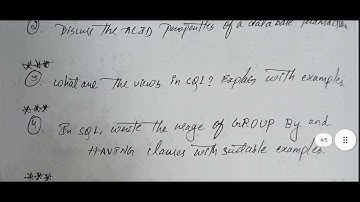 ②. Discuss the ACID properties of a database transaction
***
③. What are the views in SQL? Explain with examples.
***
④. In SQL, write the usage of GROUP By and
HAVING clauses with suitable examples.
4/5
***